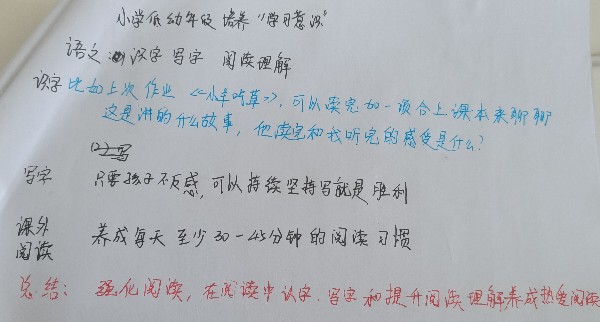 小学低幼年段 培养“学习意识”
语文: 识字 写字 阅读理解
识字 比如上次作业《小羊吃草》,可以读完加一项合上课本来聊聊
这是讲的什么故事,他读完和我听完的感受是什么?
写字 只要孩子不反感,可以持续坚持写就是胜利
课外阅读 养成每天至少30-45分钟的阅读习惯
总结: 强化阅读,在阅读中识字、写字和提升阅读理解,养成热爱阅读